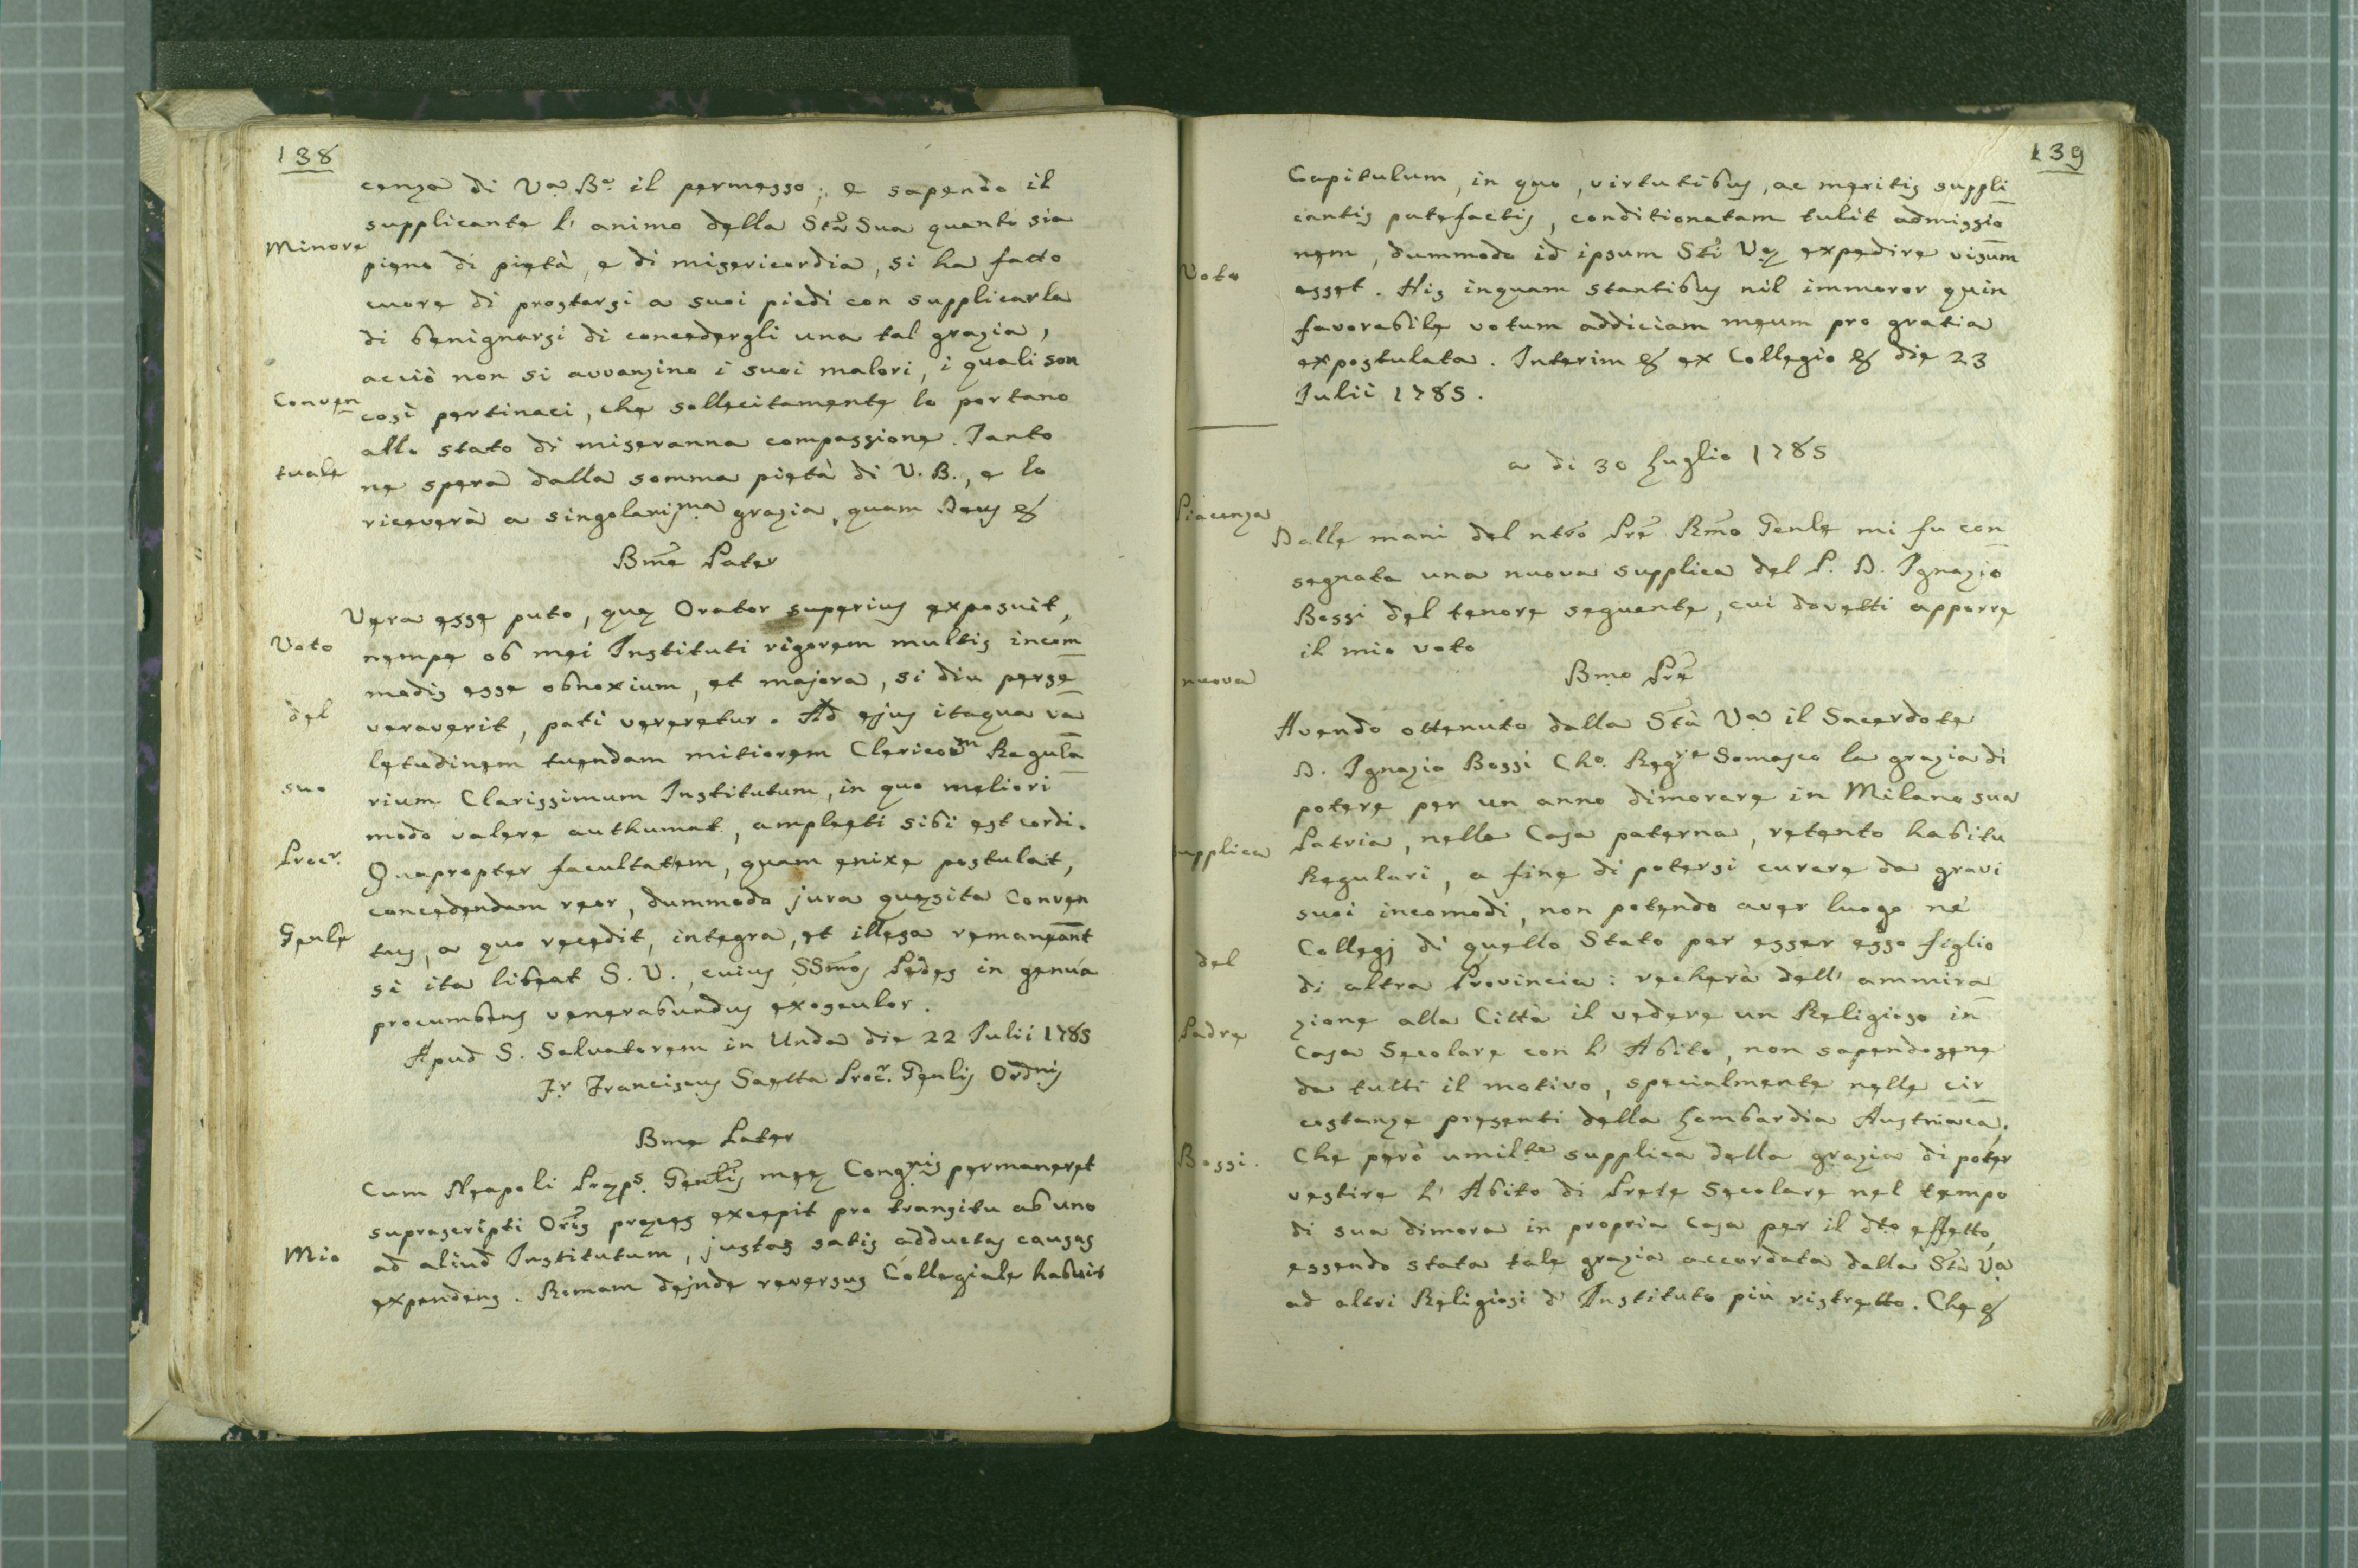 138
cenza di Va. Be. il permesso; e sapendo il
supplicante l' animo della Stà Sua quanto sia
Minore
pieno di pietà, e di misericordia, si ha fatto
cuore di prostarsi a suoi piedi con supplicarla
di benignarsi di concedergli una tal grazia,
acciò non si avvanzino i suoi malori, i quali son
Conven
così pertinaci, che sollecitamente lo portano
allo stato di miseranna compassione. Tanto
tuale
ne spera dalla somma pietà di V. B., e lo
riceverà a singolarisma grazia, quam Deus &
Bme Pater
Vera esse puto, quæ Orator superius exposuit,
Voto
nempe ob mei Instituti rigorem multis incom
modis esse obnoxium, et majora, si diu perse
del
veraverit, pati vereretur. Ad ejus itaque va
letudinem tuendam mitiorem Clericorm Regula
suo
rium Clarissimum Institutum, in quo meliori
modo valere authumat, amplecti sibi est cordi.
Procr.
Quapropter facultatem, quam enixe postulat,
concedendam reor, dummodo jura quæsita Conven
Genle
tus, a quo recedit, integra, et illesa remaneant
si ita libeat S. V., cuius SSmos Pedes in genua
procumbens venerabundus exosculor.
Apud S. Salvatorem in Unda die 22 Julii 1785
Fr. Franciscus Saetta Procr. Genlis Ordnis
Bme Pater
Cum Neapoli Præps. Genlis meæ Congnis permaneret
suprascripti Oris preces excepit pro transitu ab uno
Mio
ad aliud Institutum, justas satis adductas causas
expendens. Romam dejnde reversus Collegiale habuit
139
Capitulum, in quo, virtutibus, ac meritis suppli
cantis patefactis, conditionatam tulit admissio
nem, dummodo id ipsum Sti Væ expedire visum
Voto
esset. His inquam stantibus nil immoror quin
favorabile votum addiciam meum pro gratia
expostulata. Interim & ex Collegio & die 23
Julii 1785.
a di 30 Luglio 1785
Piacenza
Dalle mani del ntro Pre Rmo Genle mi fu con
segnata una nuova supplica del P. D. Ignazio
Bossi del tenore seguente, cui dovetti apporre
il mio voto
Bmo Pre
nuova
Avendo ottenuto dalla Stà Va il Sacerdote
D. Ignazio Bossi Cho. Regre Somasco la grazia di
potere per un anno dimorare in Milano sua
supplica
Patria, nella Casa paterna, retento habitu
Regulari, a fine di potersi curare da gravi
suoi incomodi, non potendo aver luogo ne'
del
Collegj di quello Stato per esser esso figlio
di altra Provincia: recherà dell' ammira
zione alla Città il vedere un Religioso in
Padre
Casa Secolare con l' Abito, non sapendosene
da tutti il motivo, specialmente nelle cir
costanze presenti della Lombardia Austriaca.
Bossi.
Che però umilte supplica della grazia di poter
vestire l' Abito di Prete Secolare nel tempo
di sua dimora in propria Casa per il dto effetto,
essendo stata tale grazia accordata dalla Stà Va
ad altri Religiosi d' Instituto più ristretto. Che &